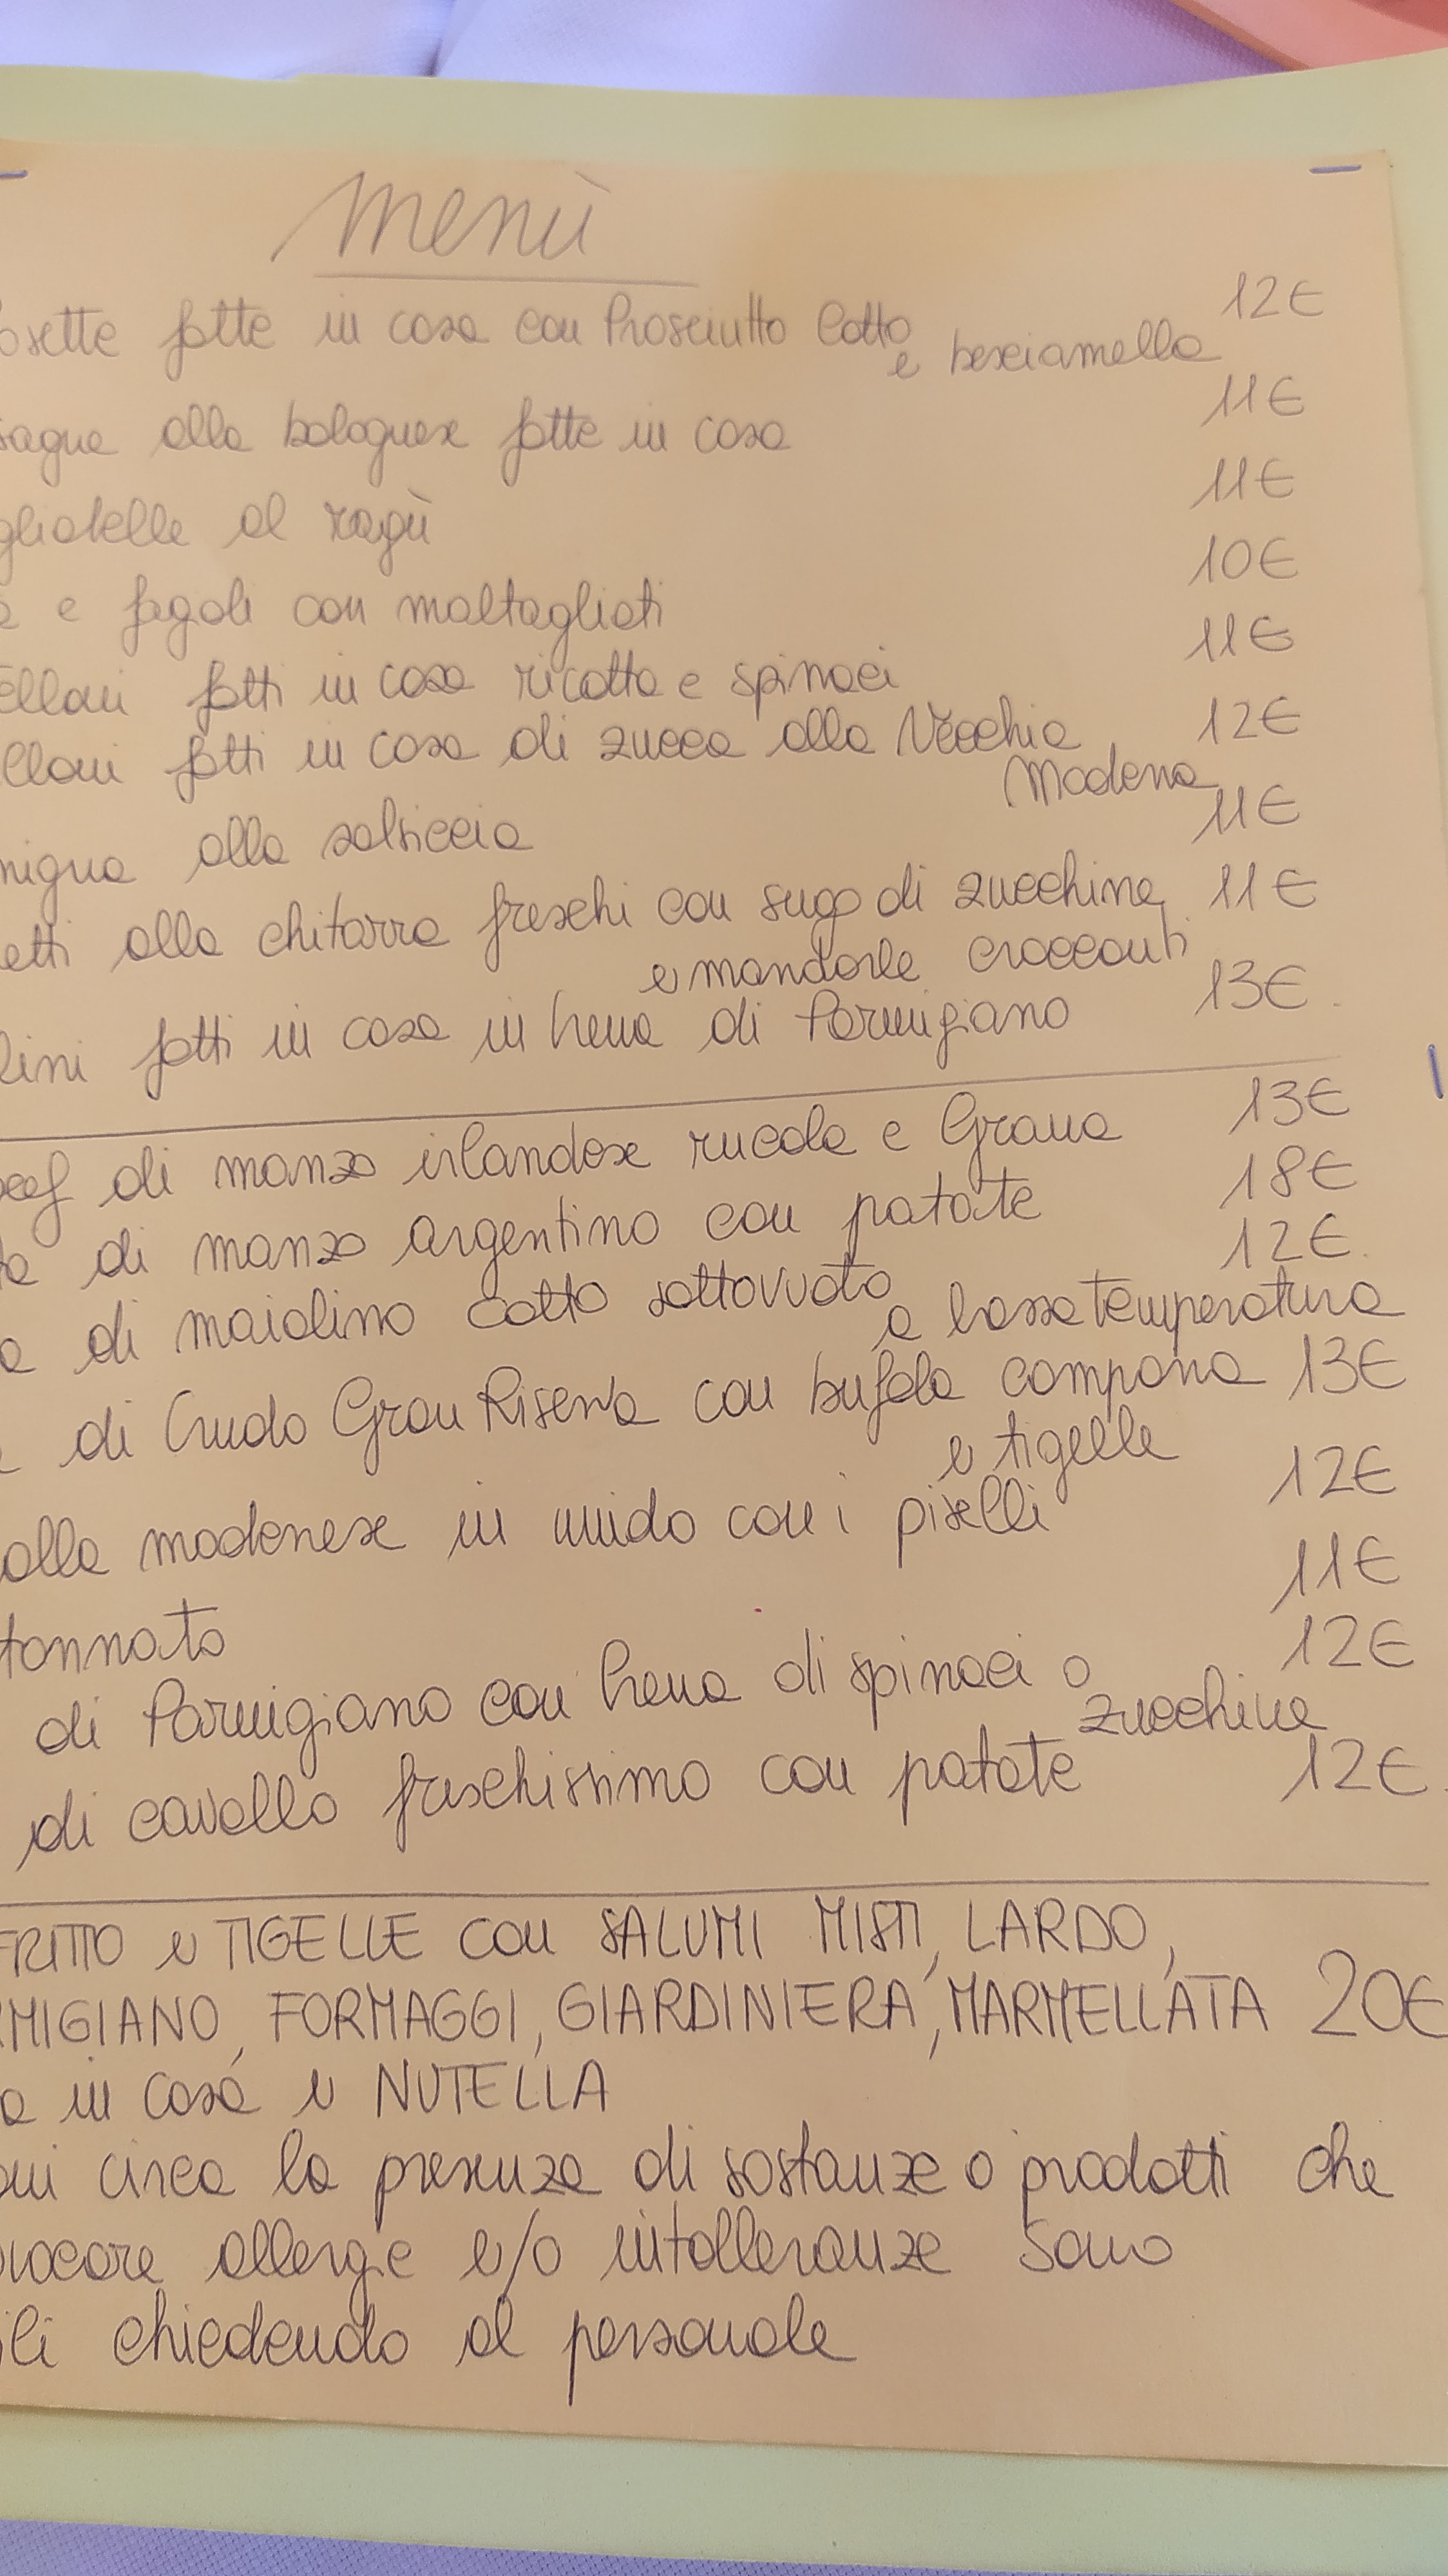 Menù
osette fatte in casa con Prosciutto Cotto 12€
e besciamella
sagne alla bolognese fatte in casa 11€
gliatelle al ragù 11€
a e fagioli con maltagliati 10€
elloni fatti in casa ricotta e spinaci 11€
lloni fatti in casa di zucca alla Vecchia 12€
Modena
migna alla salsiccia 11€
etti alla chitarra freschi con sugo di zucchine 11€
e mandorle croccanti
lini fatti in casa in crema di Parmigiano 13€
eef di manzo irlandese rucola e Grana 13€
ta di manzo argentino con patate 18€
a di maialino cotto sottovuoto 12€
a bassa temperatura
e di Crudo Gran Riserva con bufala campana 13€
e tigelle
alla modenese in umido con i piselli 12€
tonnato 11€
di Parmigiano con crema di spinaci o 12€
zucchine
di cavallo freschissimo con patate 12€
FRITTO e TIGELLE con SALUMI MISTI, LARDO,
MIGIANO, FORMAGGI, GIARDINIERA, MARMELLATA 20€
a in casa e NUTELLA
oni circa la presenza di sostanze o prodotti che
ovocare allergie e/o intolleranze sono
ili chiedendo al personale